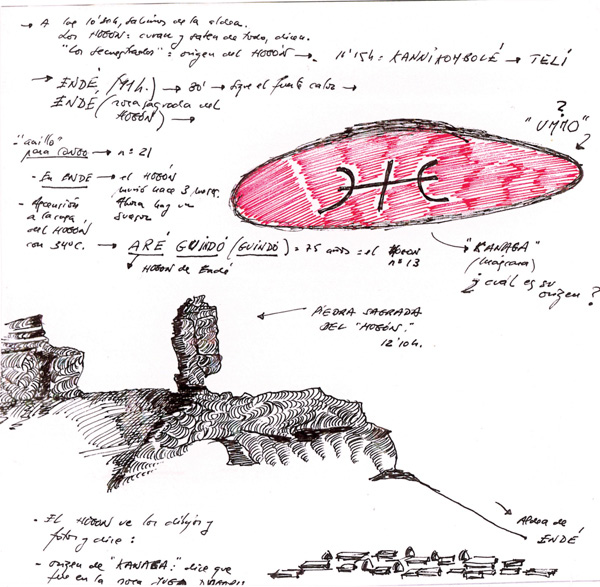 → A las 10'20h, salimos de la aldea.
Los HOGÓN: curan y saben de todo, dicen.
"Los secuestrados": origen del HOGÓN →. 11'15h: KANNIKOMBOLÉ → TELÍ
→ ENDÉ, (11h.) → 30' → Sigue el fuerte calor →
ENDÉ, (roca sagrada del
HOGÓN) →
?
"UMMO"
- "anillo"
para → nº 21
- En ENDE → el HOGÓN
murió hace 3
Ahora hay un
- Ascensión
a la roca
del HOGÓN
con 34ºC. → ARÉ GUINDÓ (GUINDÓ) = 75 años = el HOGON
nº 13
↓ HOGON de Endé
"KANAGA"
(máscara)
¿ y cuál es su
origen ?
← PIEDRA SAGRADA
DEL "HOGÓN."
12'10h.
Aldea de
ENDÉ
- El HOGON ve los dibujos y
fotos y dice:
- origen de "KANAGA:" dice que
fue en la roca